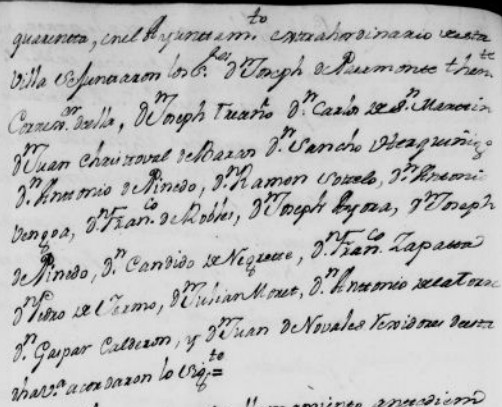 quarenta, en el Ayuntam.to extrahordinario de esta
Villa Se Juntaron los S.res Dn Joseph de Piemonte then.te
Correx.or della, Dn Joseph Treviño Dn Carlos de Sn Martin
Dn Juan Christoval de Baran Dn Sancho
Dn Antonio de Pinedo, Dn Ramon Sotelo, Dn Antonio
Vengoa, Dn Fran.co de Robles, Dn Joseph Ayora, Dn Joseph
de Pinedo, Dn Candido de Negrete, Dn Fran.co Zapata
Dn Pedro de Lermo, Dn Julian Moret, Dn Antonio de la Torre
Dn Gaspar Calderon, y Dn Juan de Novales rexidores desta
dha v.a acordaron lo Sig.to =
antecediem